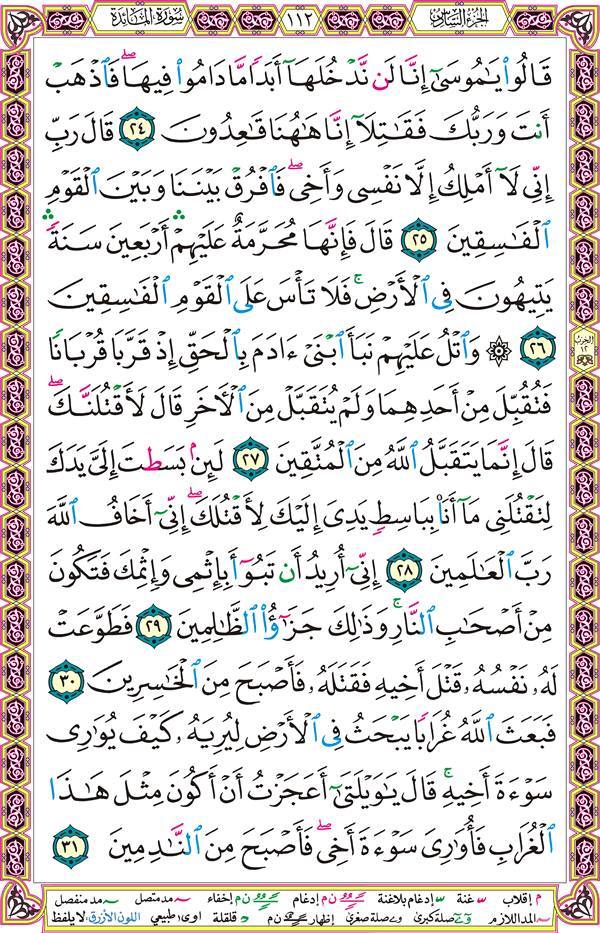 سُورَةُ المَائِدَة ١١٢ الجزء السادس
قَالُوا۟ يَـٰمُوسَىٰٓ إِنَّا لَن نَّدْخُلَهَآ أَبَدًا مَّا دَامُوا۟ فِيهَا ۖ فَٱذْهَبْ
أَنتَ وَرَبُّكَ فَقَـٰتِلَآ إِنَّا هَـٰهُنَا قَـٰعِدُونَ ٢٤ قَالَ رَبِّ
إِنِّى لَآ أَمْلِكُ إِلَّا نَفْسِى وَأَخِى ۖ فَٱفْرُقْ بَيْنَنَا وَبَيْنَ ٱلْقَوْمِ
ٱلْفَـٰسِقِينَ ٢٥ قَالَ فَإِنَّهَا مُحَرَّمَةٌ عَلَيْهِمْ ۛ أَرْبَعِينَ سَنَةً ۛ
يَتِيهُونَ فِى ٱلْأَرْضِ ۚ فَلَا تَأْسَ عَلَى ٱلْقَوْمِ ٱلْفَـٰسِقِينَ
٢٦ ۞ وَٱتْلُ عَلَيْهِمْ نَبَأَ ٱبْنَىْ ءَادَمَ بِٱلْحَقِّ إِذْ قَرَّبَا قُرْبَانًا
الحزب ١٢
فَتُقُبِّلَ مِنْ أَحَدِهِمَا وَلَمْ يُتَقَبَّلْ مِنَ ٱلْـَٔاخَرِ قَالَ لَأَقْتُلَنَّكَ ۖ
قَالَ إِنَّمَا يَتَقَبَّلُ ٱللَّهُ مِنَ ٱلْمُتَّقِينَ ٢٧ لَئِنۢ بَسَطتَ إِلَىَّ يَدَكَ
لِتَقْتُلَنِى مَآ أَنَا۠ بِبَاسِطٍ يَدِىَ إِلَيْكَ لِأَقْتُلَكَ ۖ إِنِّىٓ أَخَافُ ٱللَّهَ
رَبَّ ٱلْعَـٰلَمِينَ ٢٨ إِنِّىٓ أُرِيدُ أَن تَبُوٓأَ بِإِثْمِى وَإِثْمِكَ فَتَكُونَ
مِنْ أَصْحَـٰبِ ٱلنَّارِ ۚ وَذَٰلِكَ جَزَٰٓؤُا۟ ٱلظَّـٰلِمِينَ ٢٩ فَطَوَّعَتْ
لَهُۥ نَفْسُهُۥ قَتْلَ أَخِيهِ فَقَتَلَهُۥ فَأَصْبَحَ مِنَ ٱلْخَـٰسِرِينَ ٣٠
فَبَعَثَ ٱللَّهُ غُرَابًا يَبْحَثُ فِى ٱلْأَرْضِ لِيُرِيَهُۥ كَيْفَ يُوَٰرِى
سَوْءَةَ أَخِيهِ ۚ قَالَ يَـٰوَيْلَتَىٰٓ أَعَجَزْتُ أَنْ أَكُونَ مِثْلَ هَـٰذَا
ٱلْغُرَابِ فَأُوَٰرِىَ سَوْءَةَ أَخِى ۖ فَأَصْبَحَ مِنَ ٱلنَّـٰدِمِينَ ٣١
م إقلاب س غنة س إدغام بلاغنة ن م إدغام ن م إخفاء مد متصل مد منفصل
المد اللازم صلة كبرى صلة صغرى إظهار ن م قلقلة اوى طبيعي اللون الأزرق: لا يلفظ